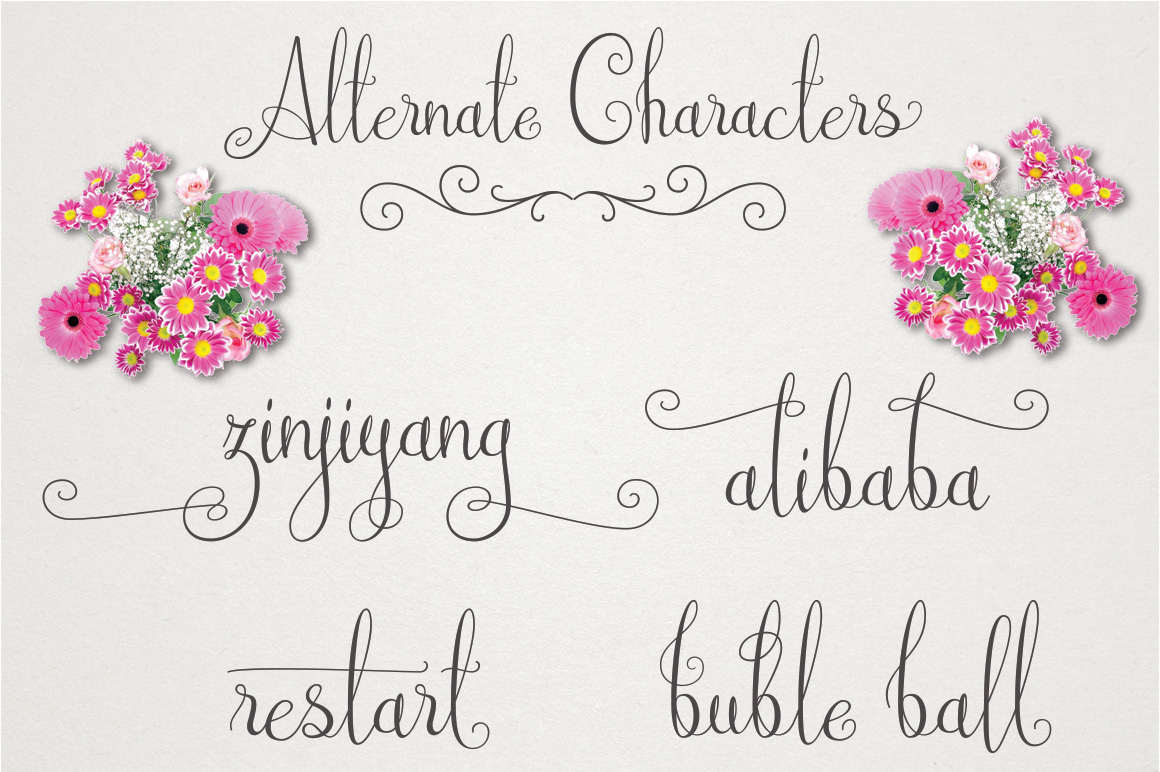 Alternate Characters
zinjiyang
alibaba
restart
buble ball